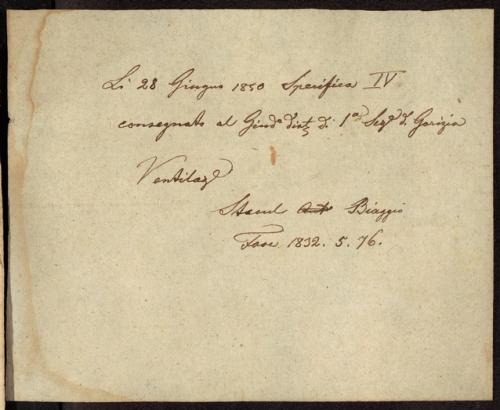 Li 28 Giugno 1850 Specifica IV
consegnato al Giud.º distr. di 1ª Sezᵉ di Gorizia
Ventilazᵉ
Stacul Ant Biaggio
Fasc 1832. 5. 76.